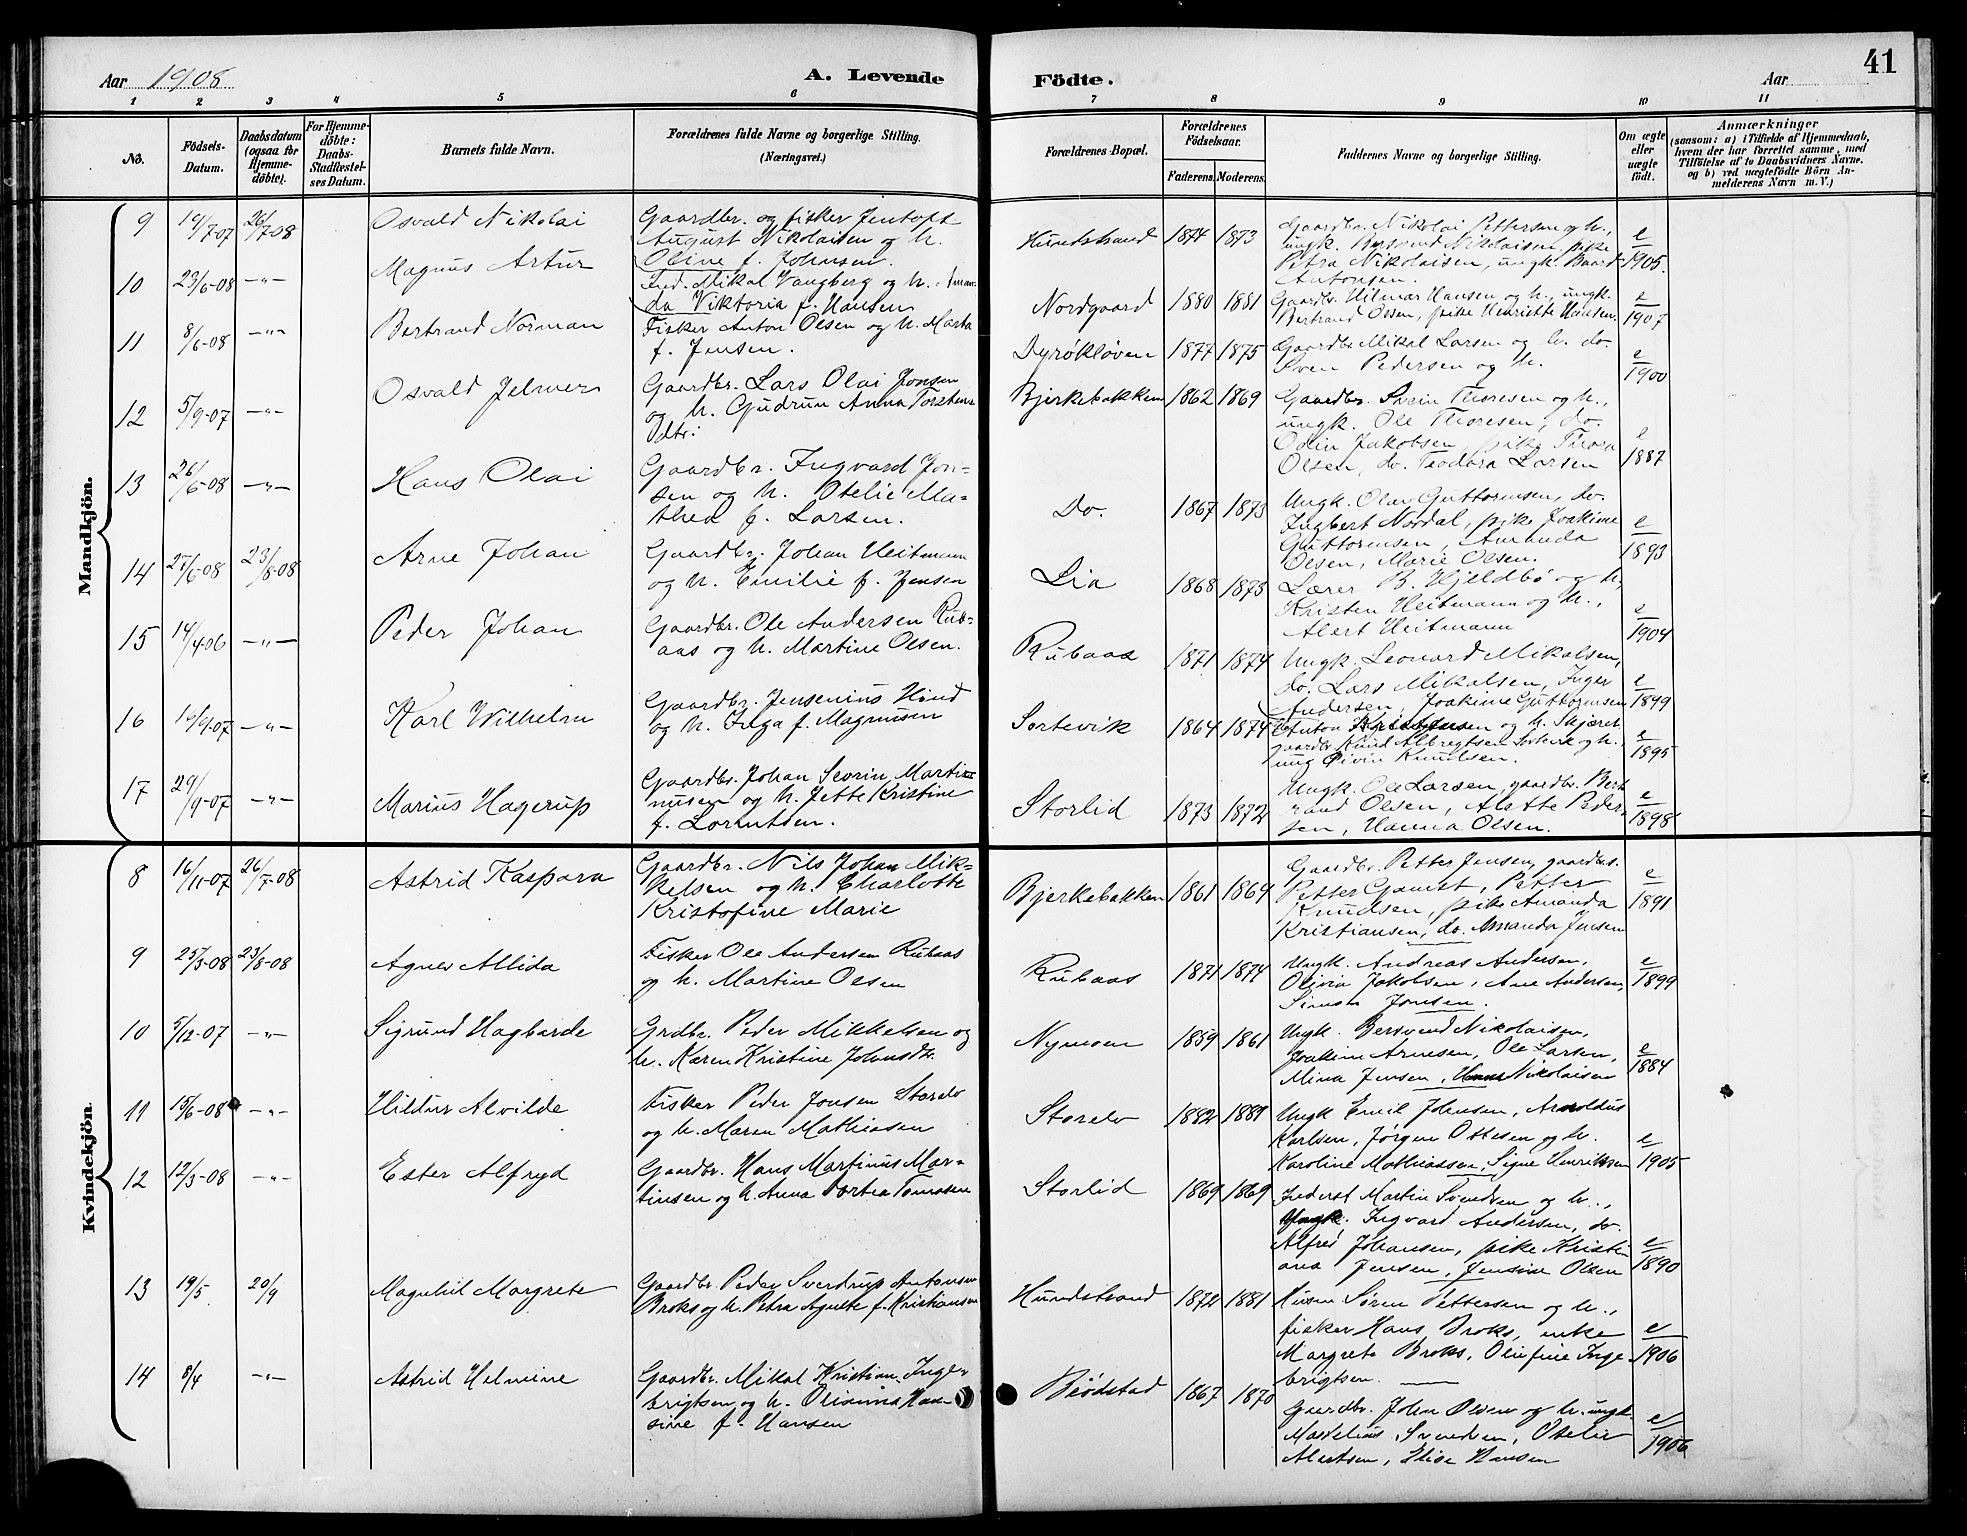 Aar 1908
A. Levende
Födte.
Aar
41
1 2 3 4 5 6 7 8 9 10 11
No.
Födsels-
Datum.
Daabsdatum
(ogsaa for
Hjemme-
döbte).
For Hjemme-
döbte:
Daabs-
Stadfæstel-
ses Datum.
Barnets fulde Navn.
Forældrenes fulde Navne og borgerlige Stilling.
(Næringsvei.)
Forældrenes Bopæl.
Forældrenes
Födselsaar.
Faderens.
Moderens.
Faddernes Navne og borgerlige Stilling.
Om ægte
eller
uægte
födt.
Anmærkninger
(saasom: a) i Tilfælde af Hjemmedaab,
hvem der har forrettet samme, med
Tilföielse af to Daabsvidners Navne.
og b) ved uægtefödte Börn An-
melderens Navn m. V.)
Mandkjön.
9 19/7-07 26/7-08 Osvald Nikolai
Gaardbr. og fisker Jentoft
August Nikolaisen og h.
Oline f. Johnsen.
Hundstrand 1874 1873
Gaardbr. Nikolai Pettersen og h.,
ungk. Bersvend Nikolaisen, pike
Petra Nikolaisen, ungk. Baard
Antonsen.
e/1905.
10 23/6-08 -"- Magnus Artur
Ind. Mikal Vangberg og h. Aman-
da Viktoria f. Hansen
Nordgaard 1880 1881
Gaardbr. Hilmar Hansen og h., ungk.
Bertrand Olsen, pike Henriette Hansen.
e/1907
11 8/6-08 -"- Bertrand Norman
Fisker Anton Olsen og h. Marta
f. Jensen.
Dyrøkløven 1877 1875
Gaardbr. Mikal Larsen og h. do.
Sven Pedersen og h.
e/1900
12 5/9-07 -"- Osvald Jelmer
Gaardbr. Lars Olai Jonsen
og h. Gudrun Anna Torstens-
Bjerkebakken 1862 1869
Gaardbr. Svein Thoresen og h.,
ungk. Ole Thoresen, do.
Odin Jakobsen, pike Thora
Olsen, do. Teodora Larsen
e/1887
13 26/6-08 -"- Hans Olai
Gaardbr. Ingvard Jon-
sen og h. Otelie Ma-
thea f. Larsen.
Do. 1867 1873
Ungk. Olav Guttormsen, do.
Ingbert Nordal, pike Joakime
Guttormsen, Amanda
Olsen, Marie Olsen.
e/1893
14 25/6-08 23/8-08 Arne Johan
Gaardbr. Johan Heitmann
og h. Emilie f. Jensen
Lia 1868 1873
Lærer B. Hjeldbø og h.,
Kristen Heitmann og h.,
Alert Heitmann
e/1904
15 14/4-06 -"- Peder Johan
Gaardbr. Ole Andersen Rub-
aas og h. Martine Olsen.
Rubaas 1871 1874
Ungk. Leonard Mikalsen,
do. Lars Mikalsen, Inger
Andersen, Joakime Guttormsen
e/1899
16 -"- Karl Wilhelm
Gaardbr. Jensenius Hind
og h. Inga f. Magnusen
Sortevik 1864 1874
Anton og h. Skjæret
gaardbr. Knud Albregtsen Sortevik og h.
ung Eivin Knudsen.
e/1895
17 29/9-07 -"- Marius Hagerup
Gaardbr. Johan Severin Marti-
nusen og h. Jette Kristine
f. Lorentsen.
Storlid 1873 1872
Ungk. Ole Larsen, gaardbr. Bert-
rand Olsen, Alette Peder-
sen, Hanna Olsen.
e/1898
Kvindekjön.
8 16/11-07 26/7-08 Astrid Kaspara
Gaardbr. Nils Johan Mik-
kelsen og h. Charlotte
Kristofine Marie
Bjerkebakken 1861 1864
Gaardbr. Petter Jensen, gaardbr.
Petter Gamst, Petter
Knudsen, pike Amanda
Kristiansen, do. Amanda Jensen
e/1891
9 25/3-08 23/8-08 Agnes Allida
Fisker Ole Andersen Rubaas
og h. Martine Olsen
Rubaas 1871 1874
Ungk. Andreas Andersen,
Olivia Jakobsen, Ane Andersen,
Simon Jensen.
e/1899
10 5/12-07 -"- Sigrund Hagbarde
Grdbr. Peder Mikkelsen og
h. Karen Kristine Johnsdtr.
Nymoen 1859 1861
Ungk. Bersvend Nikolaisen,
Joakim Arnesen, Ole Larsen,
Mina Jensen, Nikolaisen
e/1884
11 15/6-08 -"- Hildur Alvilde
Fisker Peder Jonsen Storelv
og h. Maren Mathiasen
Storelv 1882 1881
Ungk Emil Johnsen, Arnoldus
Karlsen, Jørgen Ottesen og h.
Karoline Mathiassen, Signe Henriksen
e/1905
12 12/3-08 -"- Ester Alfryd
Gaardbr. Hans Martinus Mar-
tinsen og h. Anna Tomasen
Storlid 1869 1869
Inderst Martin Svendsen og h.,
Ungk. Ingvard Andersen, do.
Alfred Johansen, pike Kristi-
ana Jensen, Jensine Olsen
e/1890
13 19/5 20/9 Magnhil Margrete
Gaardbr Peder Sverdrup Antonsen
Broks og h. Petra Agnete f. Kristiansen
Hundstrand 1872 1881
Husm Søren Pettersen og h.,
fisker Hans Broks, enke
Margrete Broks, Olufine Inge-
brigtsen.
e/1906
14 8/4 -"- Astrid Helmine
Gaardbr. Mikal Kristian Inge-
brigtsen og h. Han-
sine f. Hansen
Brödstad 1867 1870
Gaardbr. John Olsen og h. ungk
Svendsen, Otelie
Alertsen, Elise Hansen
e/1906